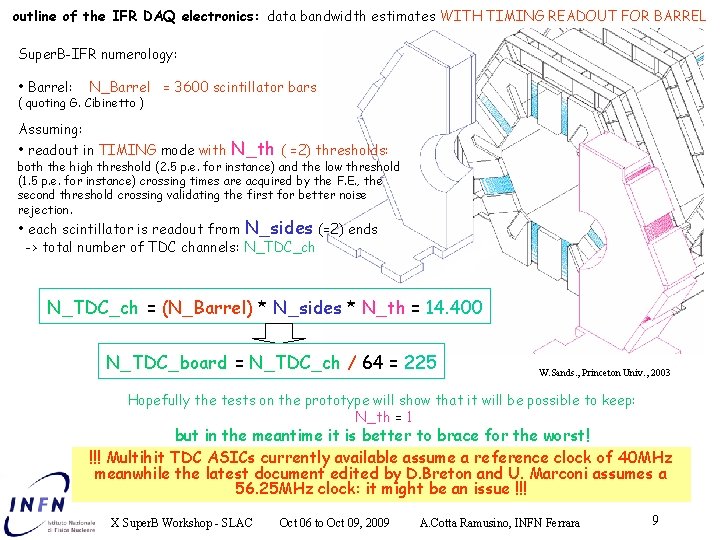 outline of the IFR DAQ electronics: data bandwidth estimates WITH TIMING READOUT FOR BARREL
SuperB-IFR numerology:
• Barrel: N_Barrel = 3600 scintillator bars
( quoting G. Cibinetto )
Assuming:
• readout in TIMING mode with N_th ( =2) thresholds:
both the high threshold (2.5 p.e. for instance) and the low threshold
(1.5 p.e. for instance) crossing times are acquired by the F.E., the
second threshold crossing validating the first for better noise
rejection.
• each scintillator is readout from N_sides (=2) ends
-> total number of TDC channels: N_TDC_ch
N_TDC_ch = (N_Barrel) * N_sides * N_th = 14.400
N_TDC_board = N_TDC_ch / 64 = 225
W.Sands., Princeton Univ., 2003
Hopefully the tests on the prototype will show that it will be possible to keep:
N_th = 1
but in the meantime it is better to brace for the worst!
!!! Multihit TDC ASICs currently available assume a reference clock of 40MHz
meanwhile the latest document edited by D.Breton and U. Marconi assumes a
56.25MHz clock: it might be an issue !!!
INFN
Istituto Nazionale
di Fisica Nucleare
X SuperB Workshop - SLAC Oct 06 to Oct 09, 2009 A.Cotta Ramusino, INFN Ferrara 9